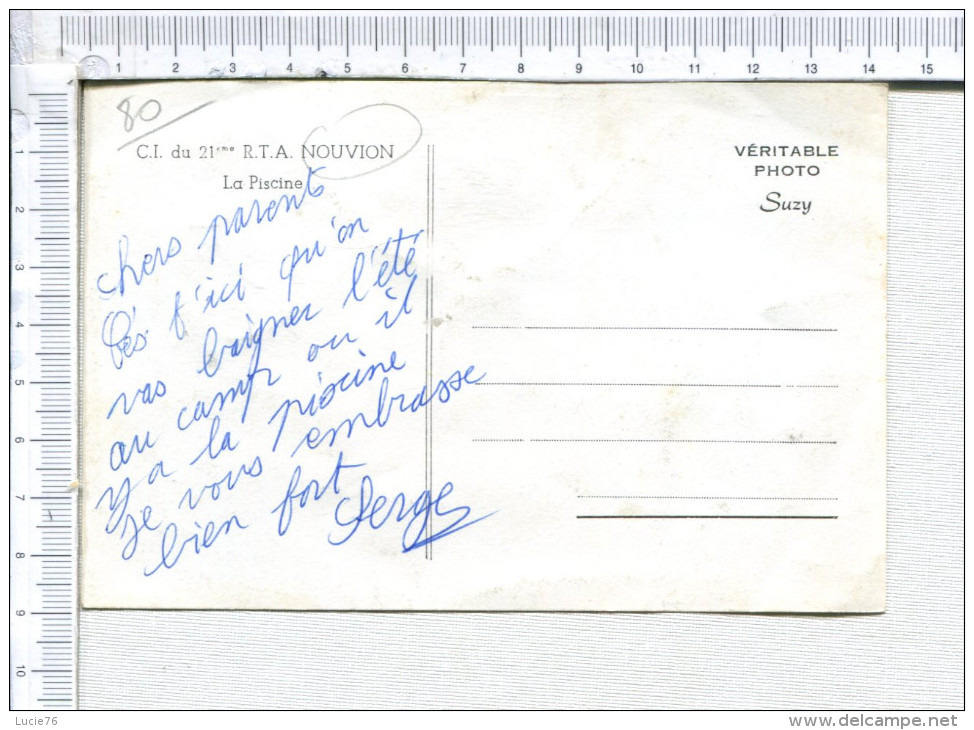 1 2 3 4 5 6 7 8 9 10 11 12 13 14 15
1
2
3
4
5
6
7
8
9
10
80
C.I. du 21ème R.T.A. NOUVION
La Piscine
VÉRITABLE
PHOTO
Suzy
chers parents
Cés t'ici qu'on
vas baigner l'été
au camp ou il
y a la piscine
je vous embrasse
bien fort
Serge
Lucie76
www.delcampe.net